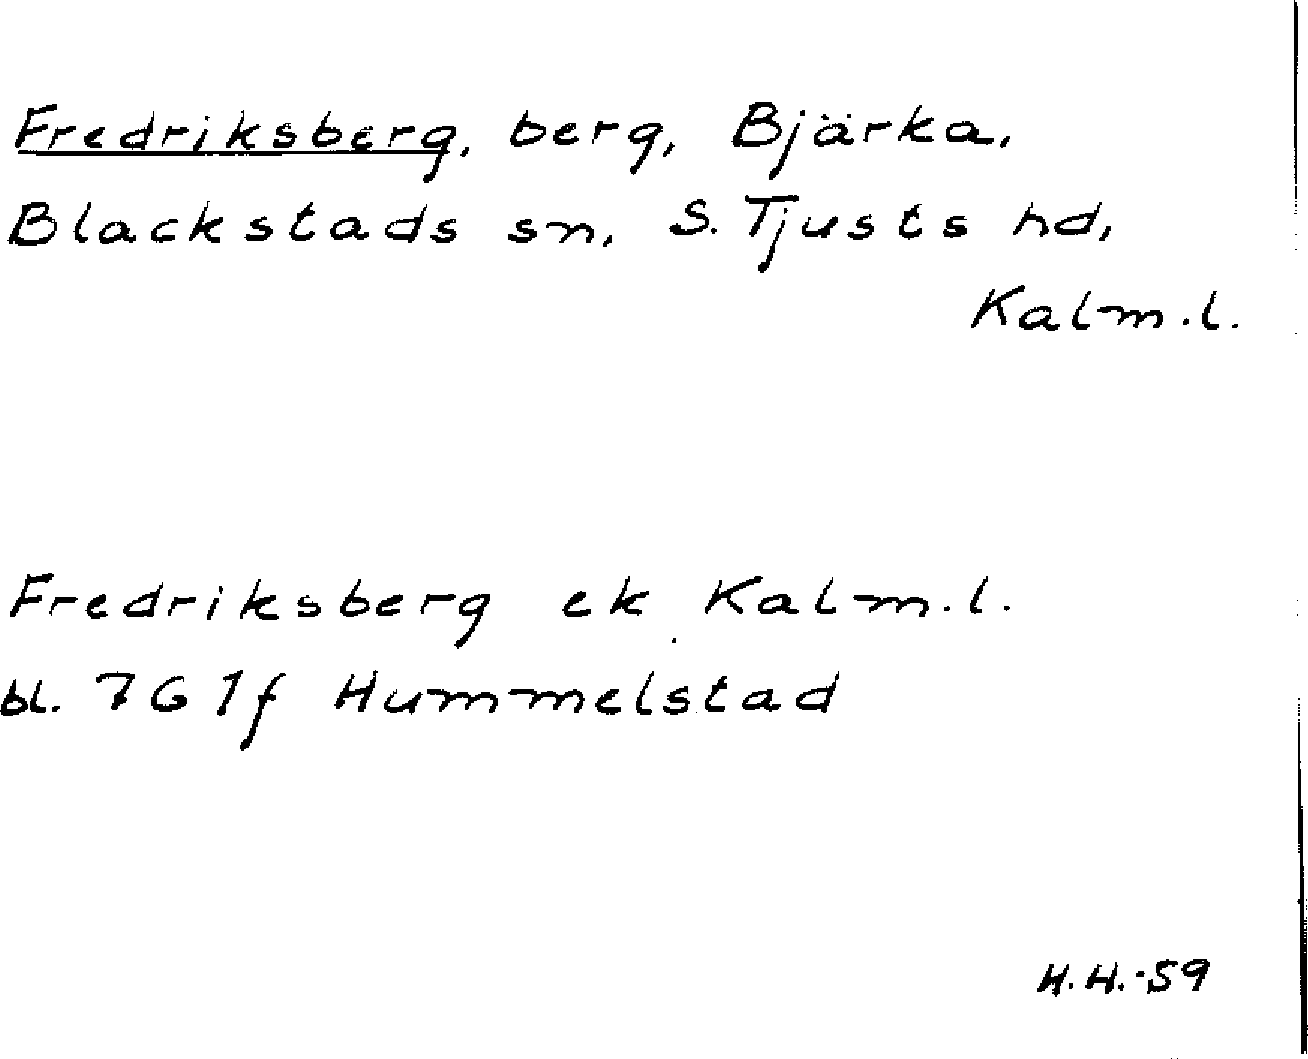 Fredriksberg, berg, Bjärka,
Blackstads sn, S. Tjusts hd,
Kalm.l.
Fredriksberg ek Kalm.l.
bl. 7G 1f Hummelstad
H.H.-59